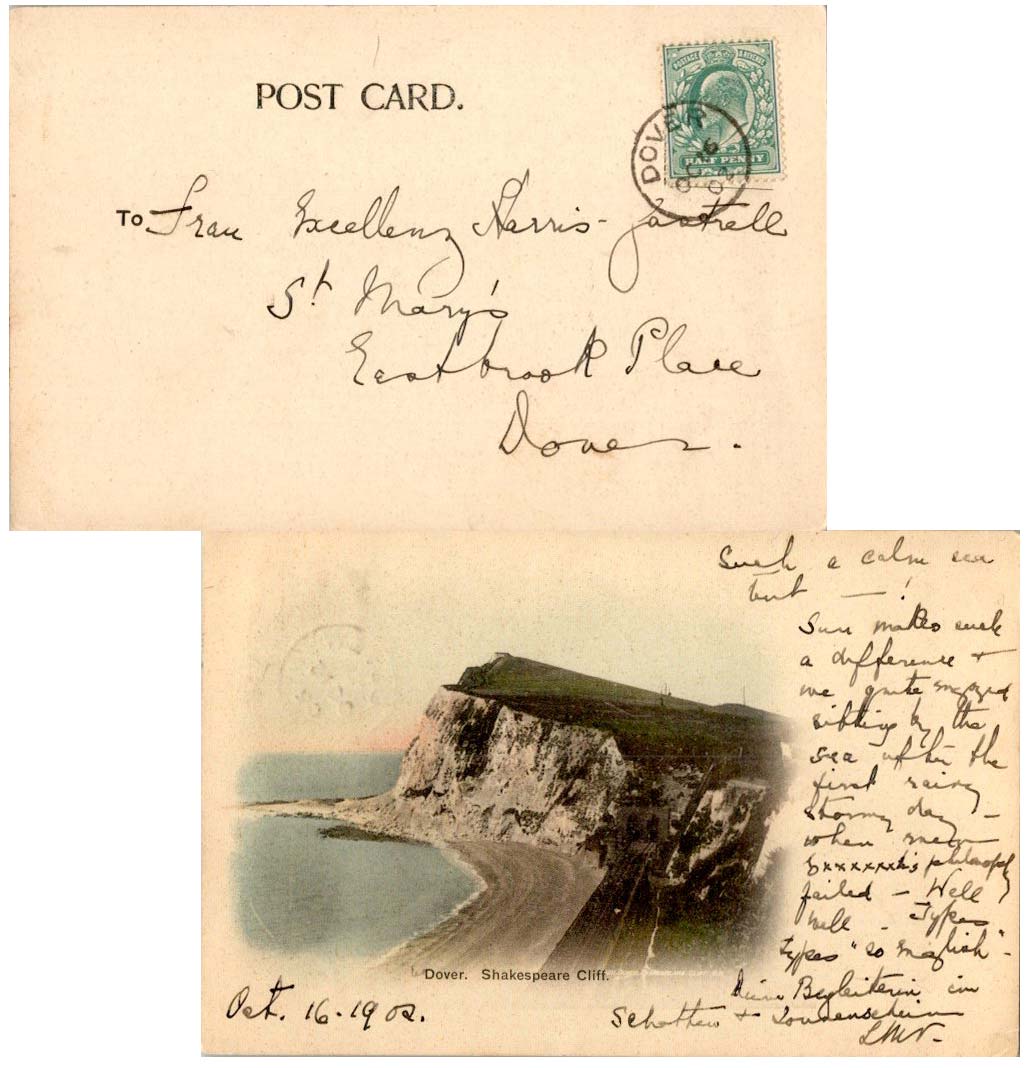 POST CARD.
POSTAGE & REVENUE
HALF PENNY
DOVER
OC 16
02
To Frau Excellenz Harris-Gastrell
St Mary's
Eastbrook Place
Dover.
Such a calm sea
but — !
Sun makes such
a difference +
we quite enjoyed
sitting by the
sea after the
first rainy
stormy day –
when
philosophy
failed – Well
well – Types
types "so English" –
Deine Begleiterin im
Schatten + Sonnenschein
Dover. Shakespeare Cliff.
Oct. 16-1902.